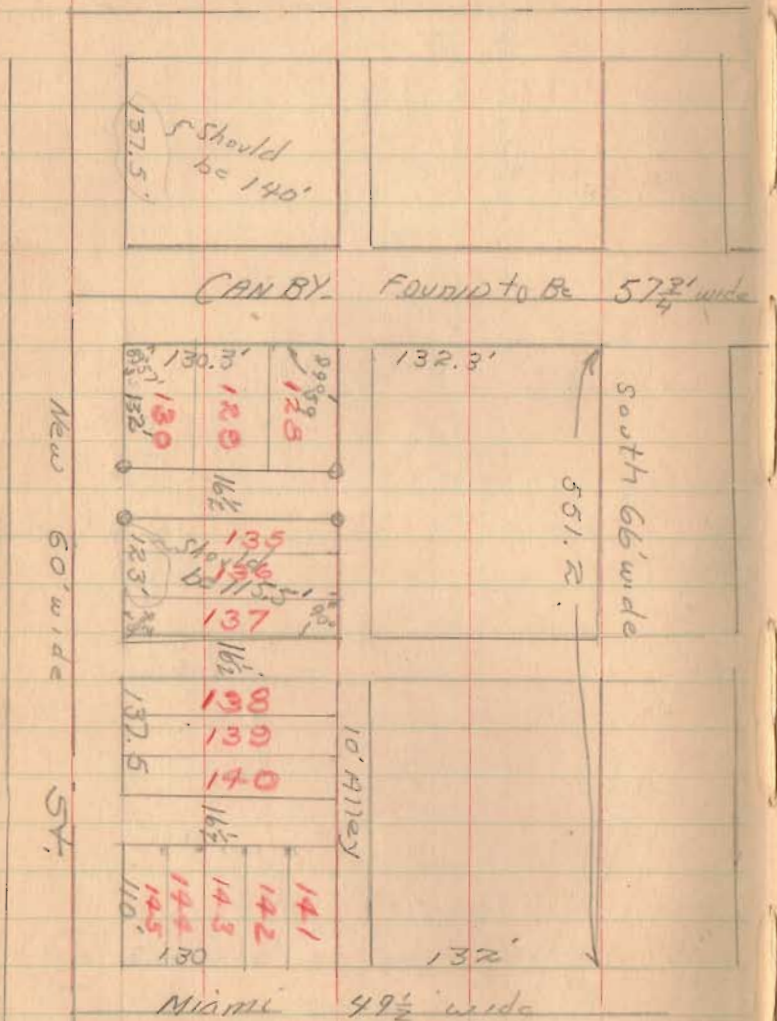 137.5'
Should
be 140'
CANBY- Found to Be 57 3/4' wide
130.3'
132.3'
89°59'
132'
130
129
128
16 1/2
South 66' wide
551.2
New 60' wide St.
135
136
137
123'
Should
be 115.5'
16 1/2
138
139
140
137.5
10' Alley
16 1/2
141
142
143
144
145
110'
130
132'
Miami 49 1/2 wide